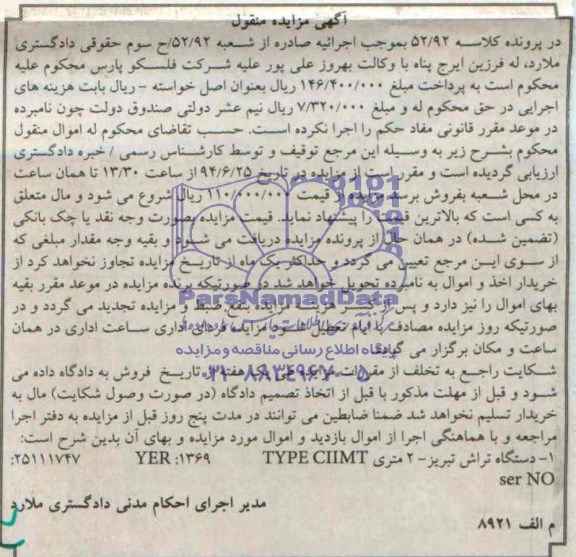 آگهی مزایده منقول
در پرونده کلاسه ۵۲/۹۲ بموجب اجرائیه صادره از شعبه ۵۲/۹۲/ح سوم حقوقی دادگستری
ملارد، له فرزین ایرج پناه با وکالت بهروز علی پور علیه شرکت فلسکو پارس محکوم علیه
محکوم است به پرداخت مبلغ ۱۴۶/۴۰۰/۰۰۰ ریال بعنوان اصل خواسته - ریال بابت هزینه های
اجرایی در حق محکوم له و مبلغ ۷/۳۲۰/۰۰۰ ریال نیم عشر دولتی صندوق دولت چون نامبرده
در موعد مقرر قانونی مفاد حکم را اجرا نکرده است. حسب تقاضای محکوم له اموال منقول
محکوم بشرح زیر به وسیله این مرجع توقیف و توسط کارشناس رسمی / خبره دادگستری
ارزیابی گردیده است و مقرر است از مزایده در تاریخ ۹۴/۶/۲۵ از ساعت ۱۳/۳۰ تا همان ساعت
در محل شعبه بفروش برسد مزایده از قیمت ۱۱۰/۰۰۰/۰۰۰ ریال شروع می شود و مال متعلق
به کسی است که بالاترین قیمت را پیشنهاد نماید. قیمت مزایده بصورت وجه نقد یا چک بانکی
(تضمین شده) در همان حال از پرونده مزایده دریافت می شود و بقیه وجه مقدار مبلغی که
از سوی این مرجع تعیین می گردد و حداکثر یک ماه از تاریخ مزایده تجاوز نخواهد کرد از
خریدار اخذ و اموال به نامبرده تحویل خواهد شد در صورتیکه برنده مزایده در موعد مقرر بقیه
بهای اموال را نیز دارد و پس از کسر هزینه مزایده بنفع ضبط و مزایده تجدید می گردد و در
صورتیکه روز مزایده مصادف با ایام تعطیل شود مزایده فردای اداری ساعت اداری در همان
ساعت و مکان برگزار می گردد.
شکایت راجع به تخلف از مقررات مزایده ظرف یک هفته از تاریخ فروش به دادگاه داده می
شود و قبل از مهلت مذکور یا قبل از اتخاذ تصمیم دادگاه (در صورت وصول شکایت) مال به
خریدار تسلیم نخواهد شد ضمنا ضابطین می توانند در مدت پنج روز قبل از مزایده به دفتر اجرا
مراجعه و با هماهنگی اجرا از اموال بازدید و اموال مورد مزایده و بهای آن بدین شرح است:
۱- دستگاه تراش تبریز- ۲ متری TYPE CIIMT YER :۱۳۶۹ :۲۵۱۱۱۷۴۷
ser NO
مدیر اجرای احکام مدنی دادگستری ملارد
م الف ۸۹۲۱
ParsNamadData
پایگاه اطلاع رسانی مناقصه و مزایده
۰۲۱-۸۸۳۴۹۶۷۰-۵